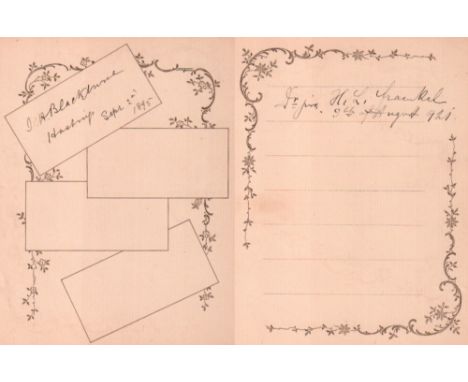 J. H. Blackburne
Hastings Sept 2nd
1895
Dr jur. H. L. Fraenkel
8th of August 921.